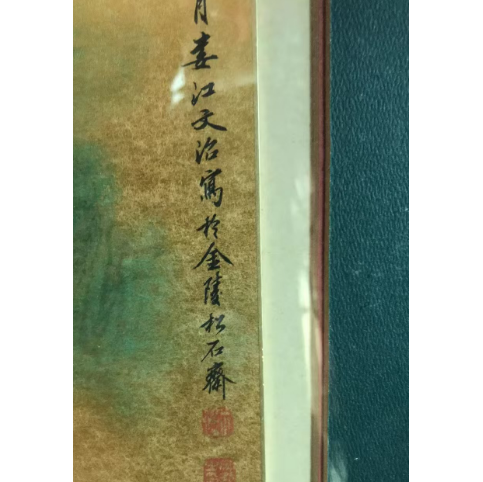 月娄江文治寫於金陵松石齋